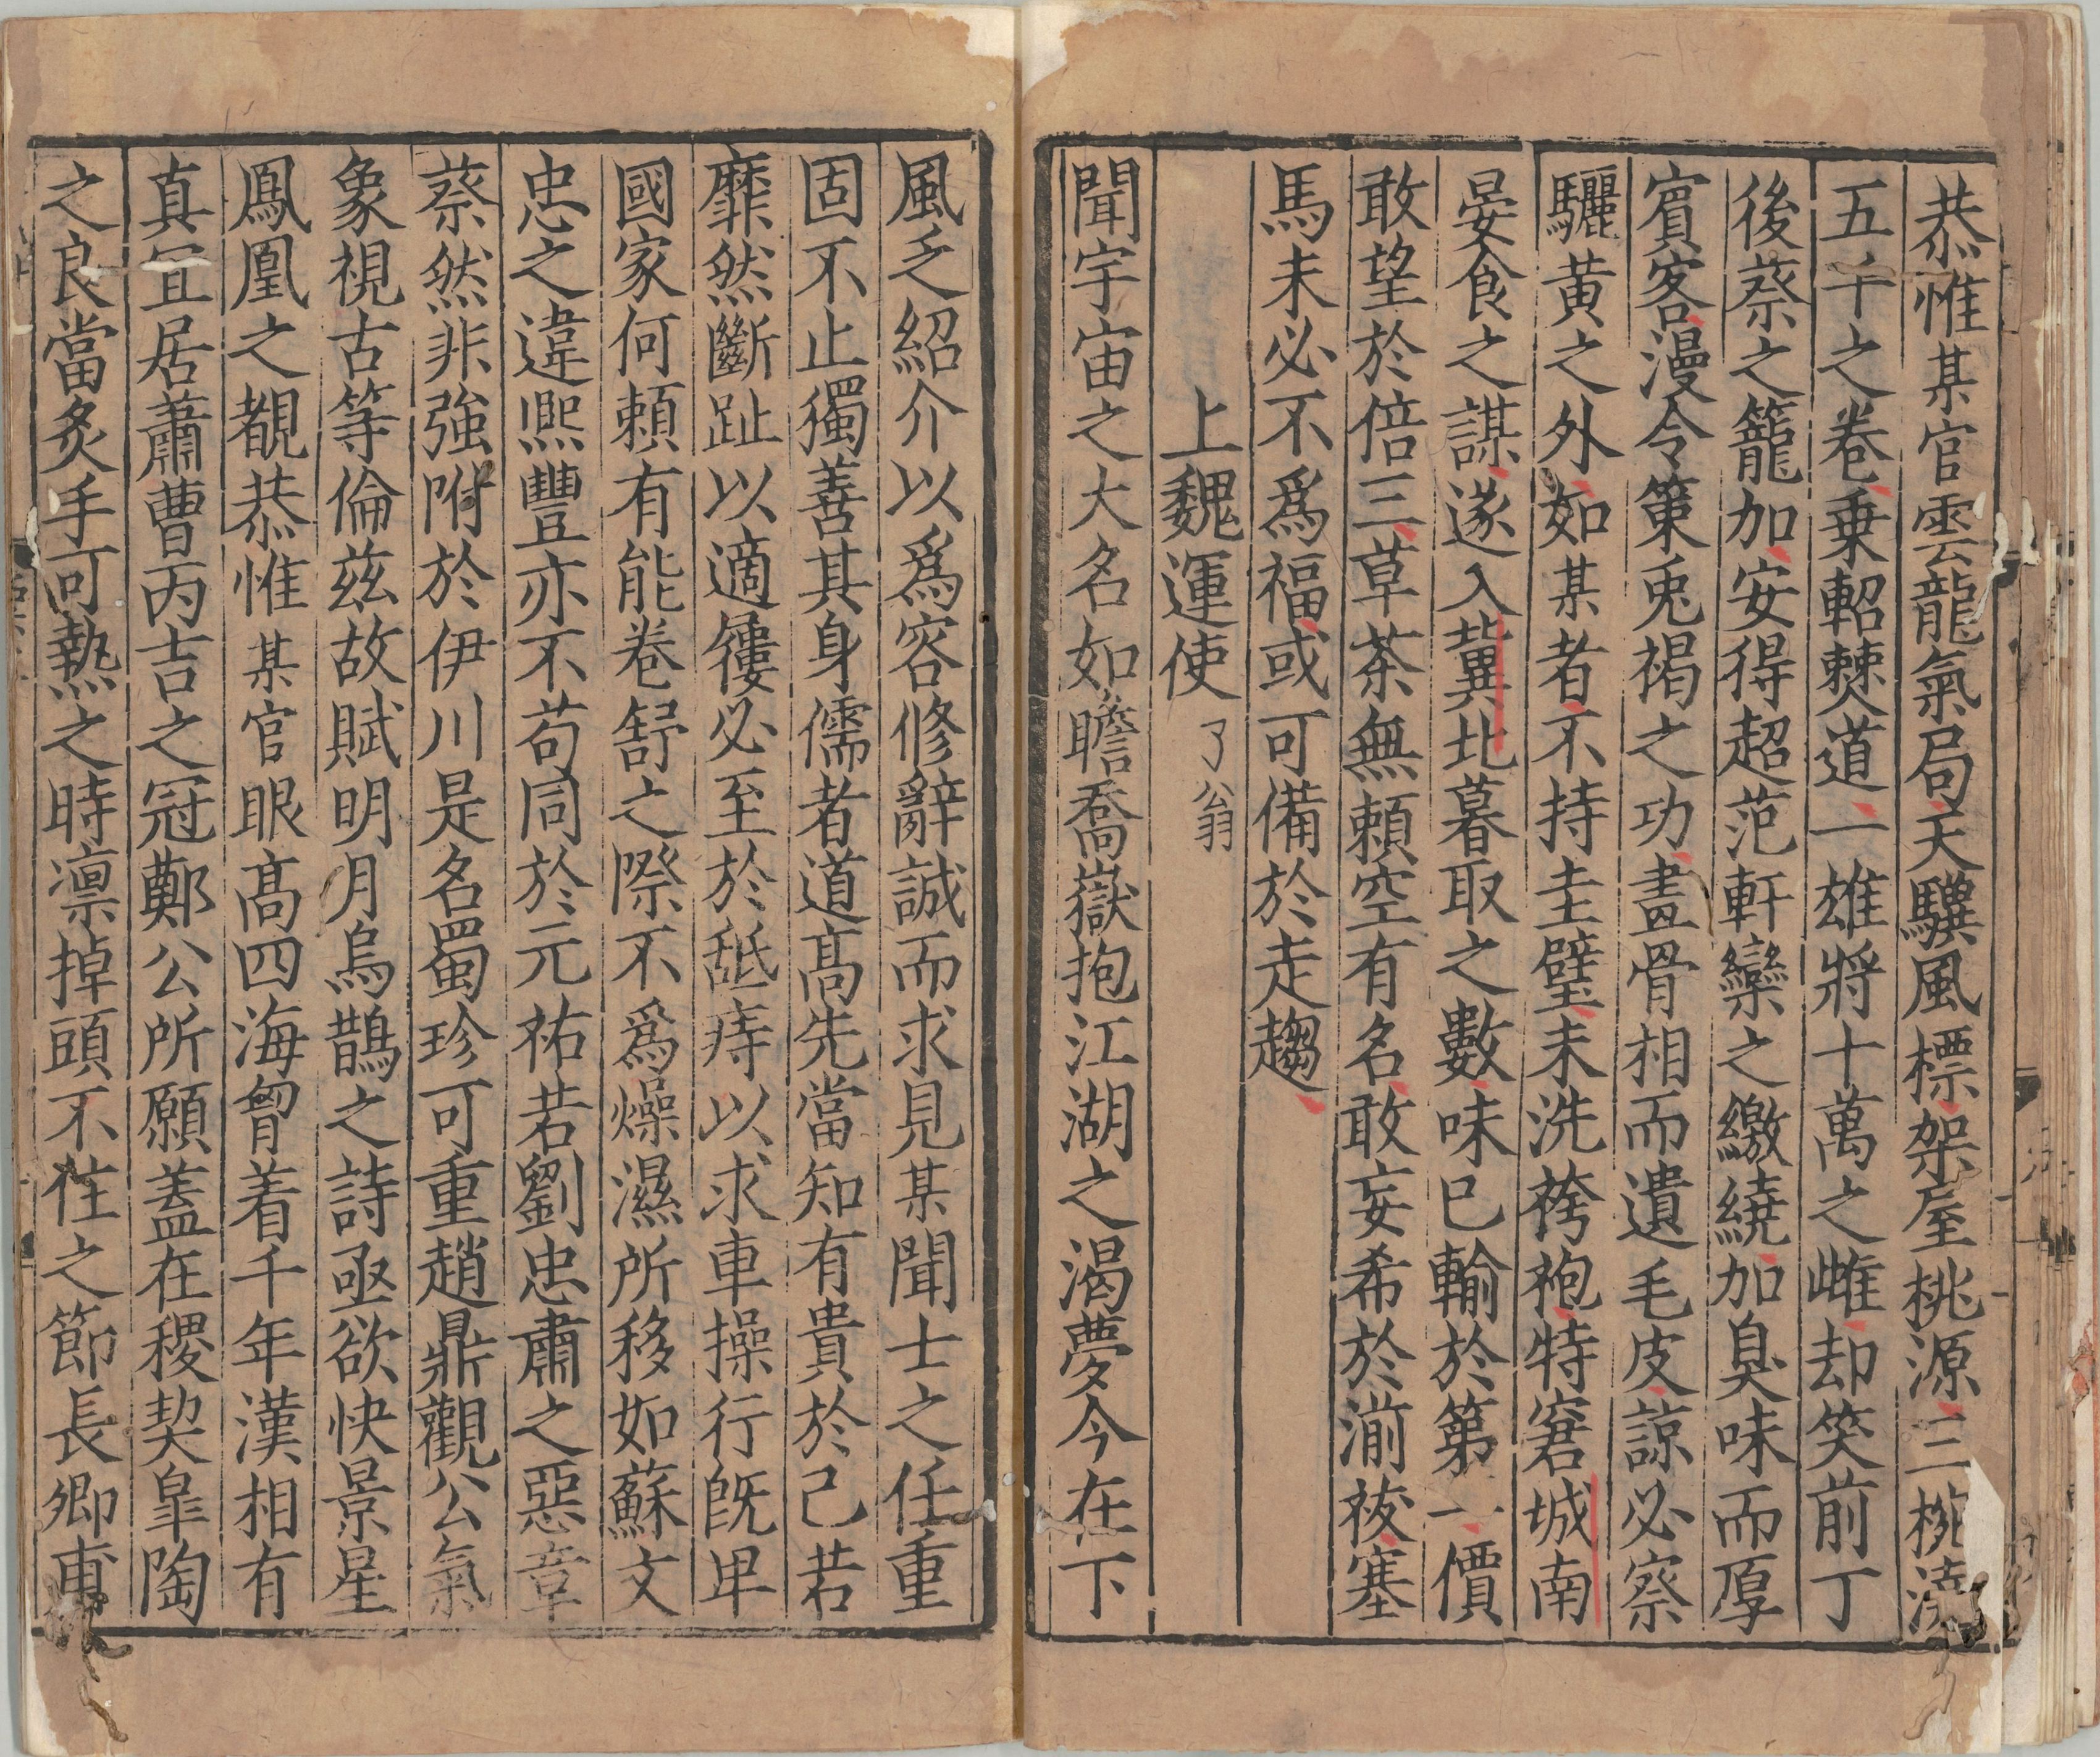 恭惟某官雲龍氣局天驥風標架屋桃源三椀澆
五千之卷乗軺僰道一雄將十萬之雌却笑前丁
後蔡之籠加安得超范軒欒之繳繞加臭味而厚
賓客漫令策兎褐之功畫骨相而遺毛皮諒必察
驪黄之外如某者不持圭璧未洗袴袍特窘城南
晏食之謀遂入冀北暮取之數味已輸於第一價
敢望於倍三草茶無頼空有名敢妄希於湔袚塞
馬未必不爲福或可備於走趨
上魏運使 了翁
聞宇宙之大名如瞻喬嶽抱江湖之渴夢今在下
風乏紹介以爲容修辭誠而求見某聞士之任重
固不止獨善其身儒者道髙先當知有貴於己若
靡然斷趾以適屨必至於舐痔以求車操行旣卑
國家何頼有能卷舒之際不爲燥濕所移如蘇文
忠之違熙豐亦不苟同於元祐若劉忠肅之惡章
蔡然非強附於伊川是名蜀珍可重趙鼎觀公氣
象視古等倫兹故賦明月烏鵲之詩亟欲快景星
鳳凰之覩恭惟某官眼髙四海胷着千年漢相有
真宜居蕭曹丙吉之冠鄭公所願蓋在稷契臯陶
之良當炙手可熱之時凛掉頭不住之節長卿専